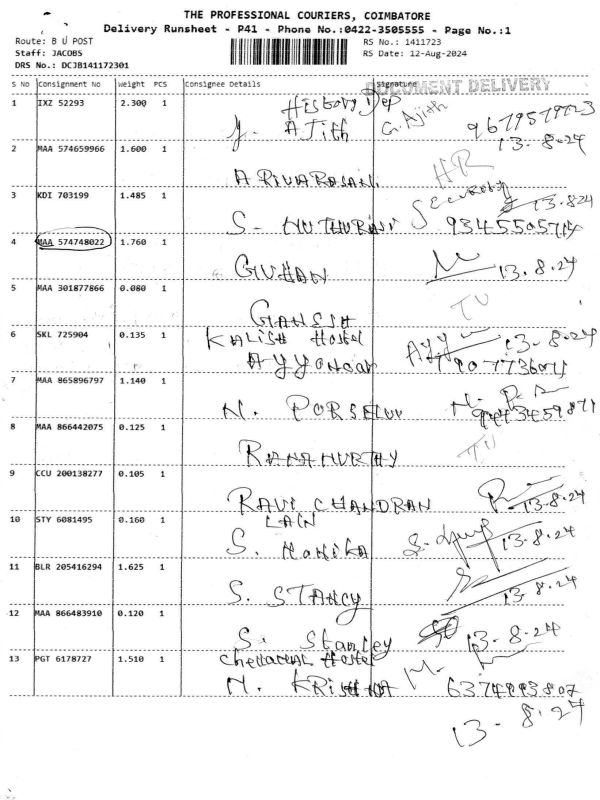 THE PROFESSIONAL COURIERS, COIMBATORE
Delivery Runsheet - P41 - Phone No.:0422-3505555 - Page No.:1
Route: B U POST
Staff: JACOBS
DRS No.: DCJB141172301
RS No.: 1411723
RS Date: 12-Aug-2024
DOCUMENT DELIVERY
S No Consignment No Weight PCS Consignee Details Signature
1 IXZ 52293 2.300 1 History Dep
AJith G. Ajith 9679579723
13-8-24
2 MAA 574659966 1.600 1
ARIVARASAN HR
3 KDI 703199 1.485 1 Security 13.8.24
S. MUTHURANI 9345505714
4 MAA 574748022 1.760 1
GUHAN 13.8.24
5 MAA 301877866 0.080 1
GANESH
6 SKL 725904 0.135 1 KALISH Hostel 13-8-24
7 MAA 865896797 1.140 1
N.
8 MAA 866442075 0.125 1
RAMAMURTHY
9 CCU 200138277 0.105 1
RAVI CHANDRAN 13.8.24
10 STY 6081495 0.160 1
S. MONIKA 13.8.24
11 BLR 205416294 1.625 1
S. STANCY 13.8.24
12 MAA 866483910 0.120 1
S. Stanley 13-8-24
13 PGT 6178727 1.510 1 Hostel
M. KRISHNA
13-8-24